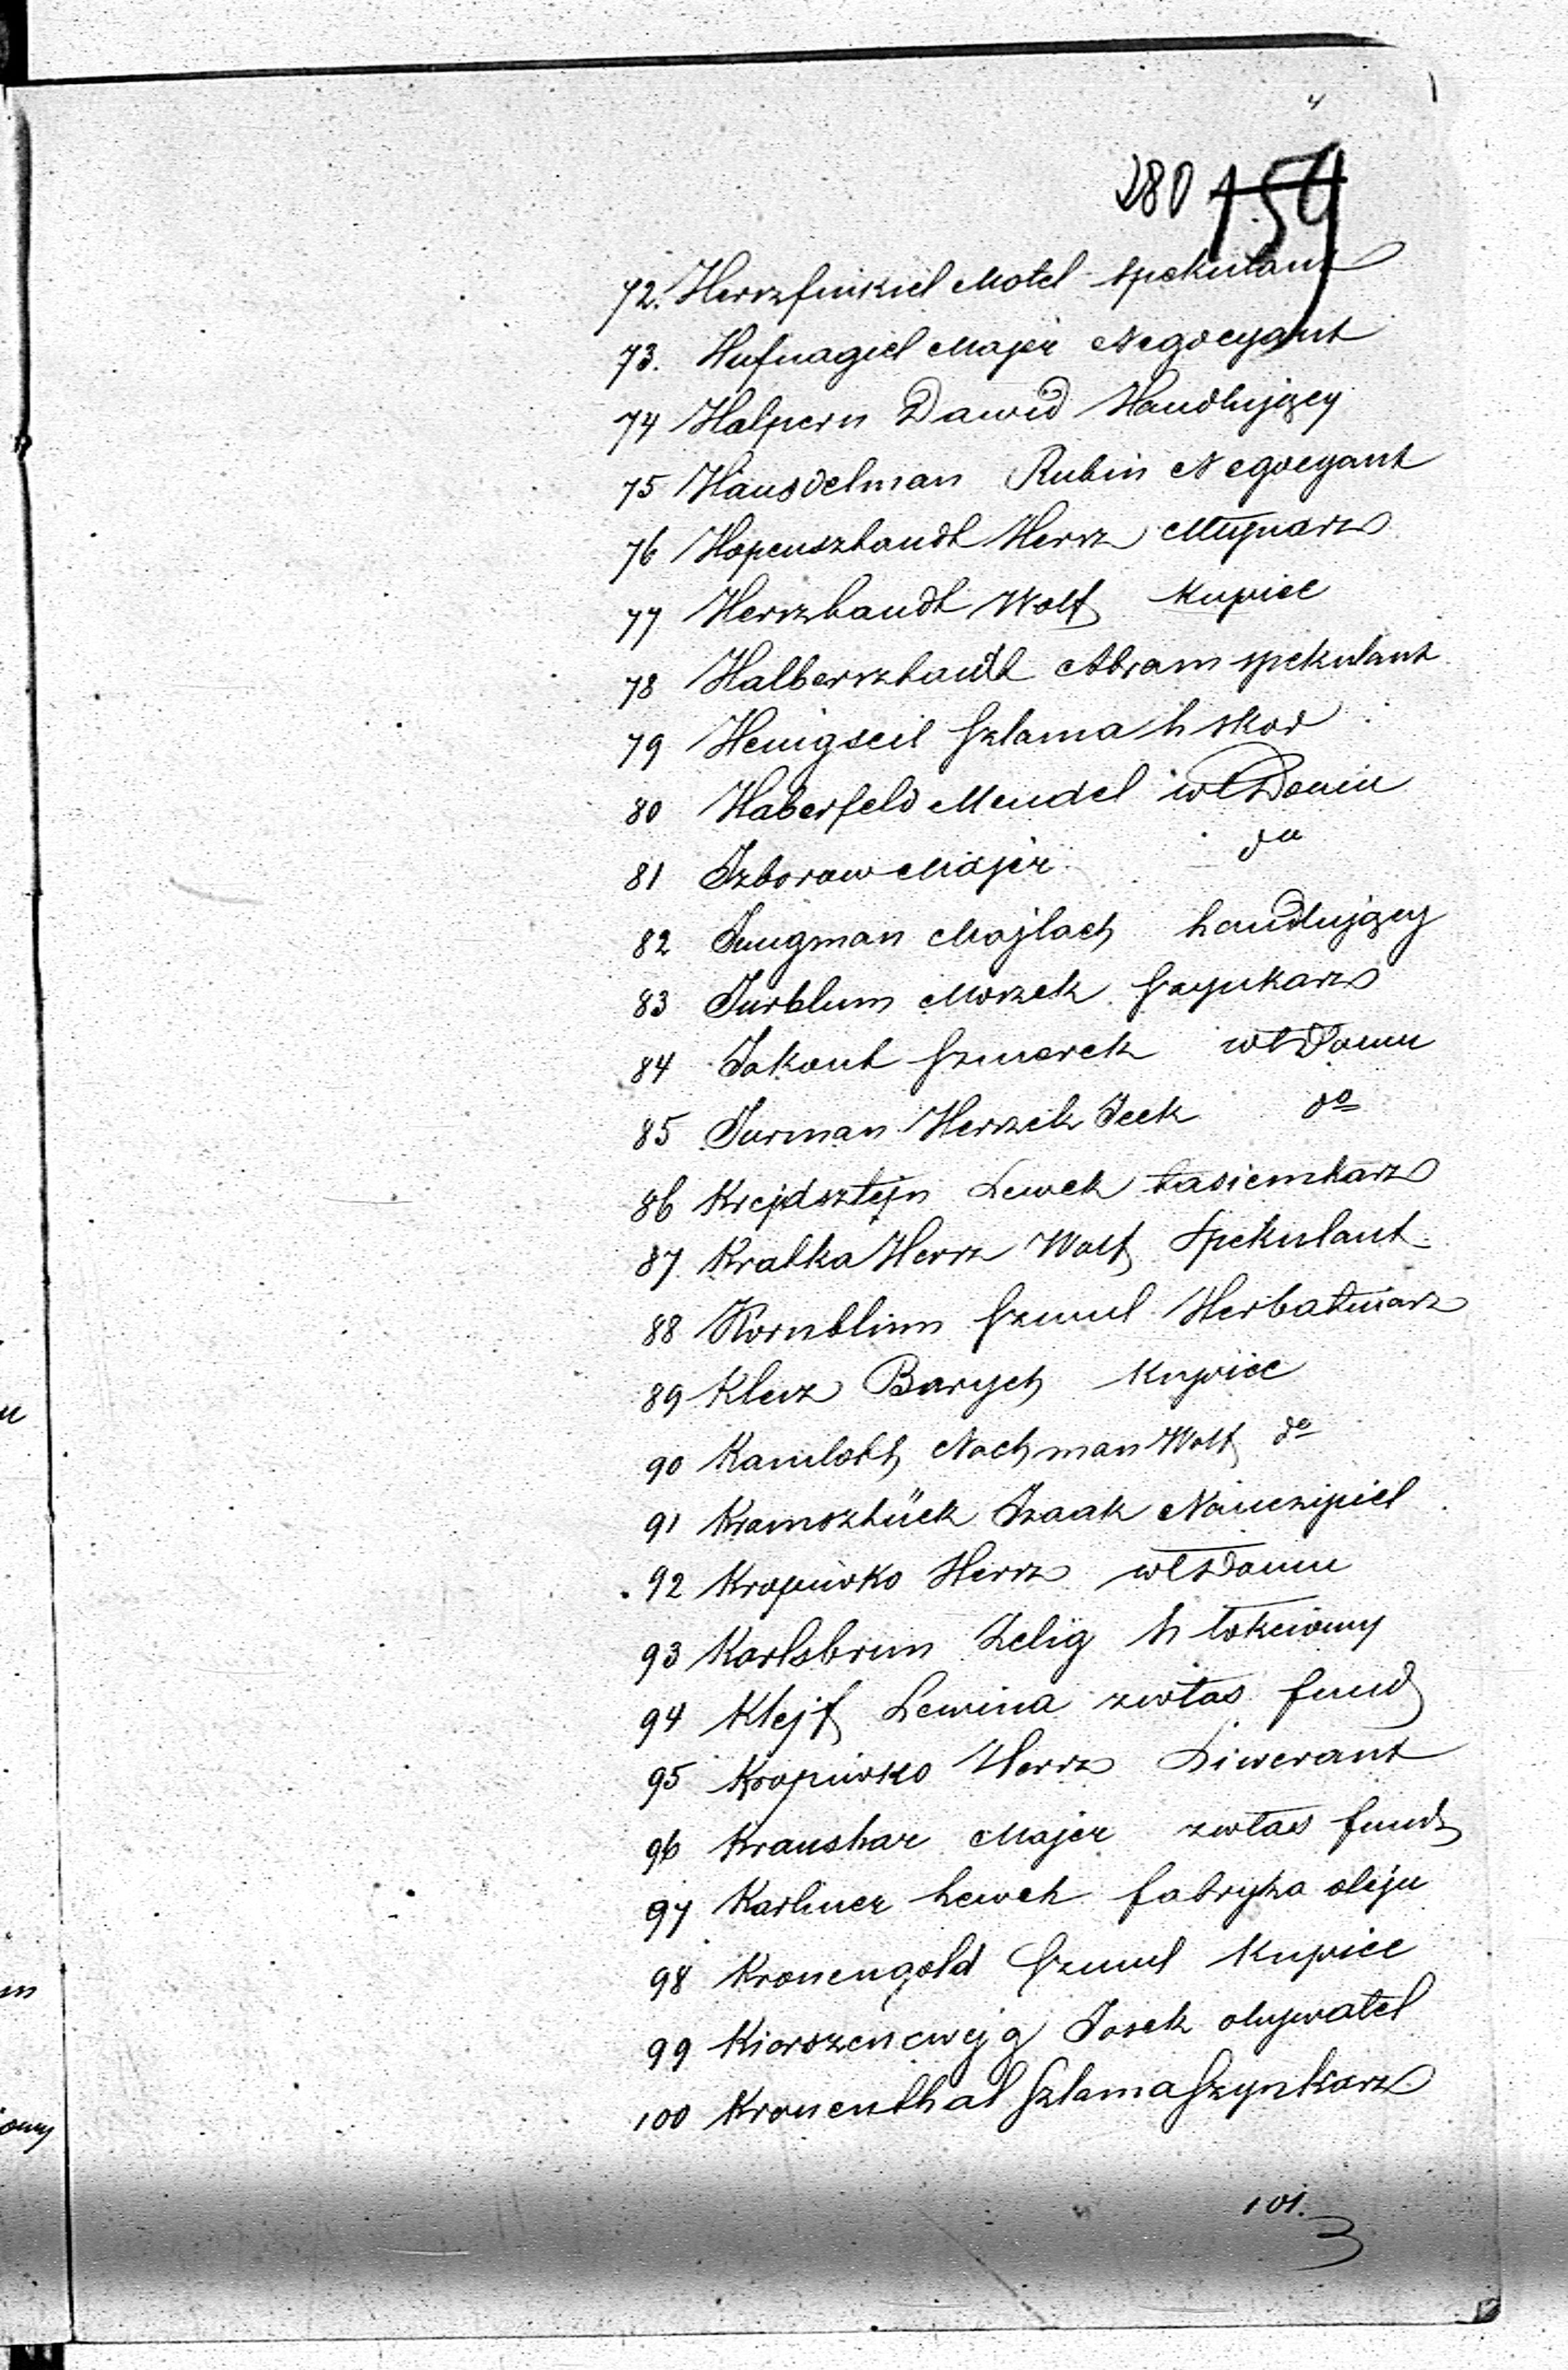 4
280 154
72. Herszfinkiel Motel spekulant
73. Hufnagiel Majer Negocyant
74 Halpern Dawid Handlujący
75 Hausdelman Rubin Negocyant
76 Hopensztandt Hersz Młynarz
77 Herszbandt Wolf Kupiec
78 Halbersztandt Abram spekulant
79 Henigseil Szlama h skor
80 Haberfeld Mendel wł Domu
81 Izboraw Majer do
82 Jungman Majlach handlujący
83 Jurblum Moszek Szynkarz
84 Jakont Szmerek wł Domu
85 Jurman Herszek Icek do
86 Krejdsztejn Lewek tasiemkarz
87 Kratka Hersz Wolf Spekulant
88 Kornblum Szmul Herbatniarz
89 Klerz Barych Kupiec
90 Kamloth Nachman Wolf do
91 Kramsztück Izaak Nauczyciel
92 Kropiwko Hersz wł Domu
93 Karlsbrun Zelig h łokciowy
94 Klejf Lewina zwłas fund
95 Kropiwko Hersz Liwerant
96 Kraushar Majer zwłas fund
97 Karliner Lewek fabryka oleju
98 Kronengold Szmul Kupiec
99 Kierszencwejg Josek obywatel
100 Kronenthal Szlama Szynkarz
101.